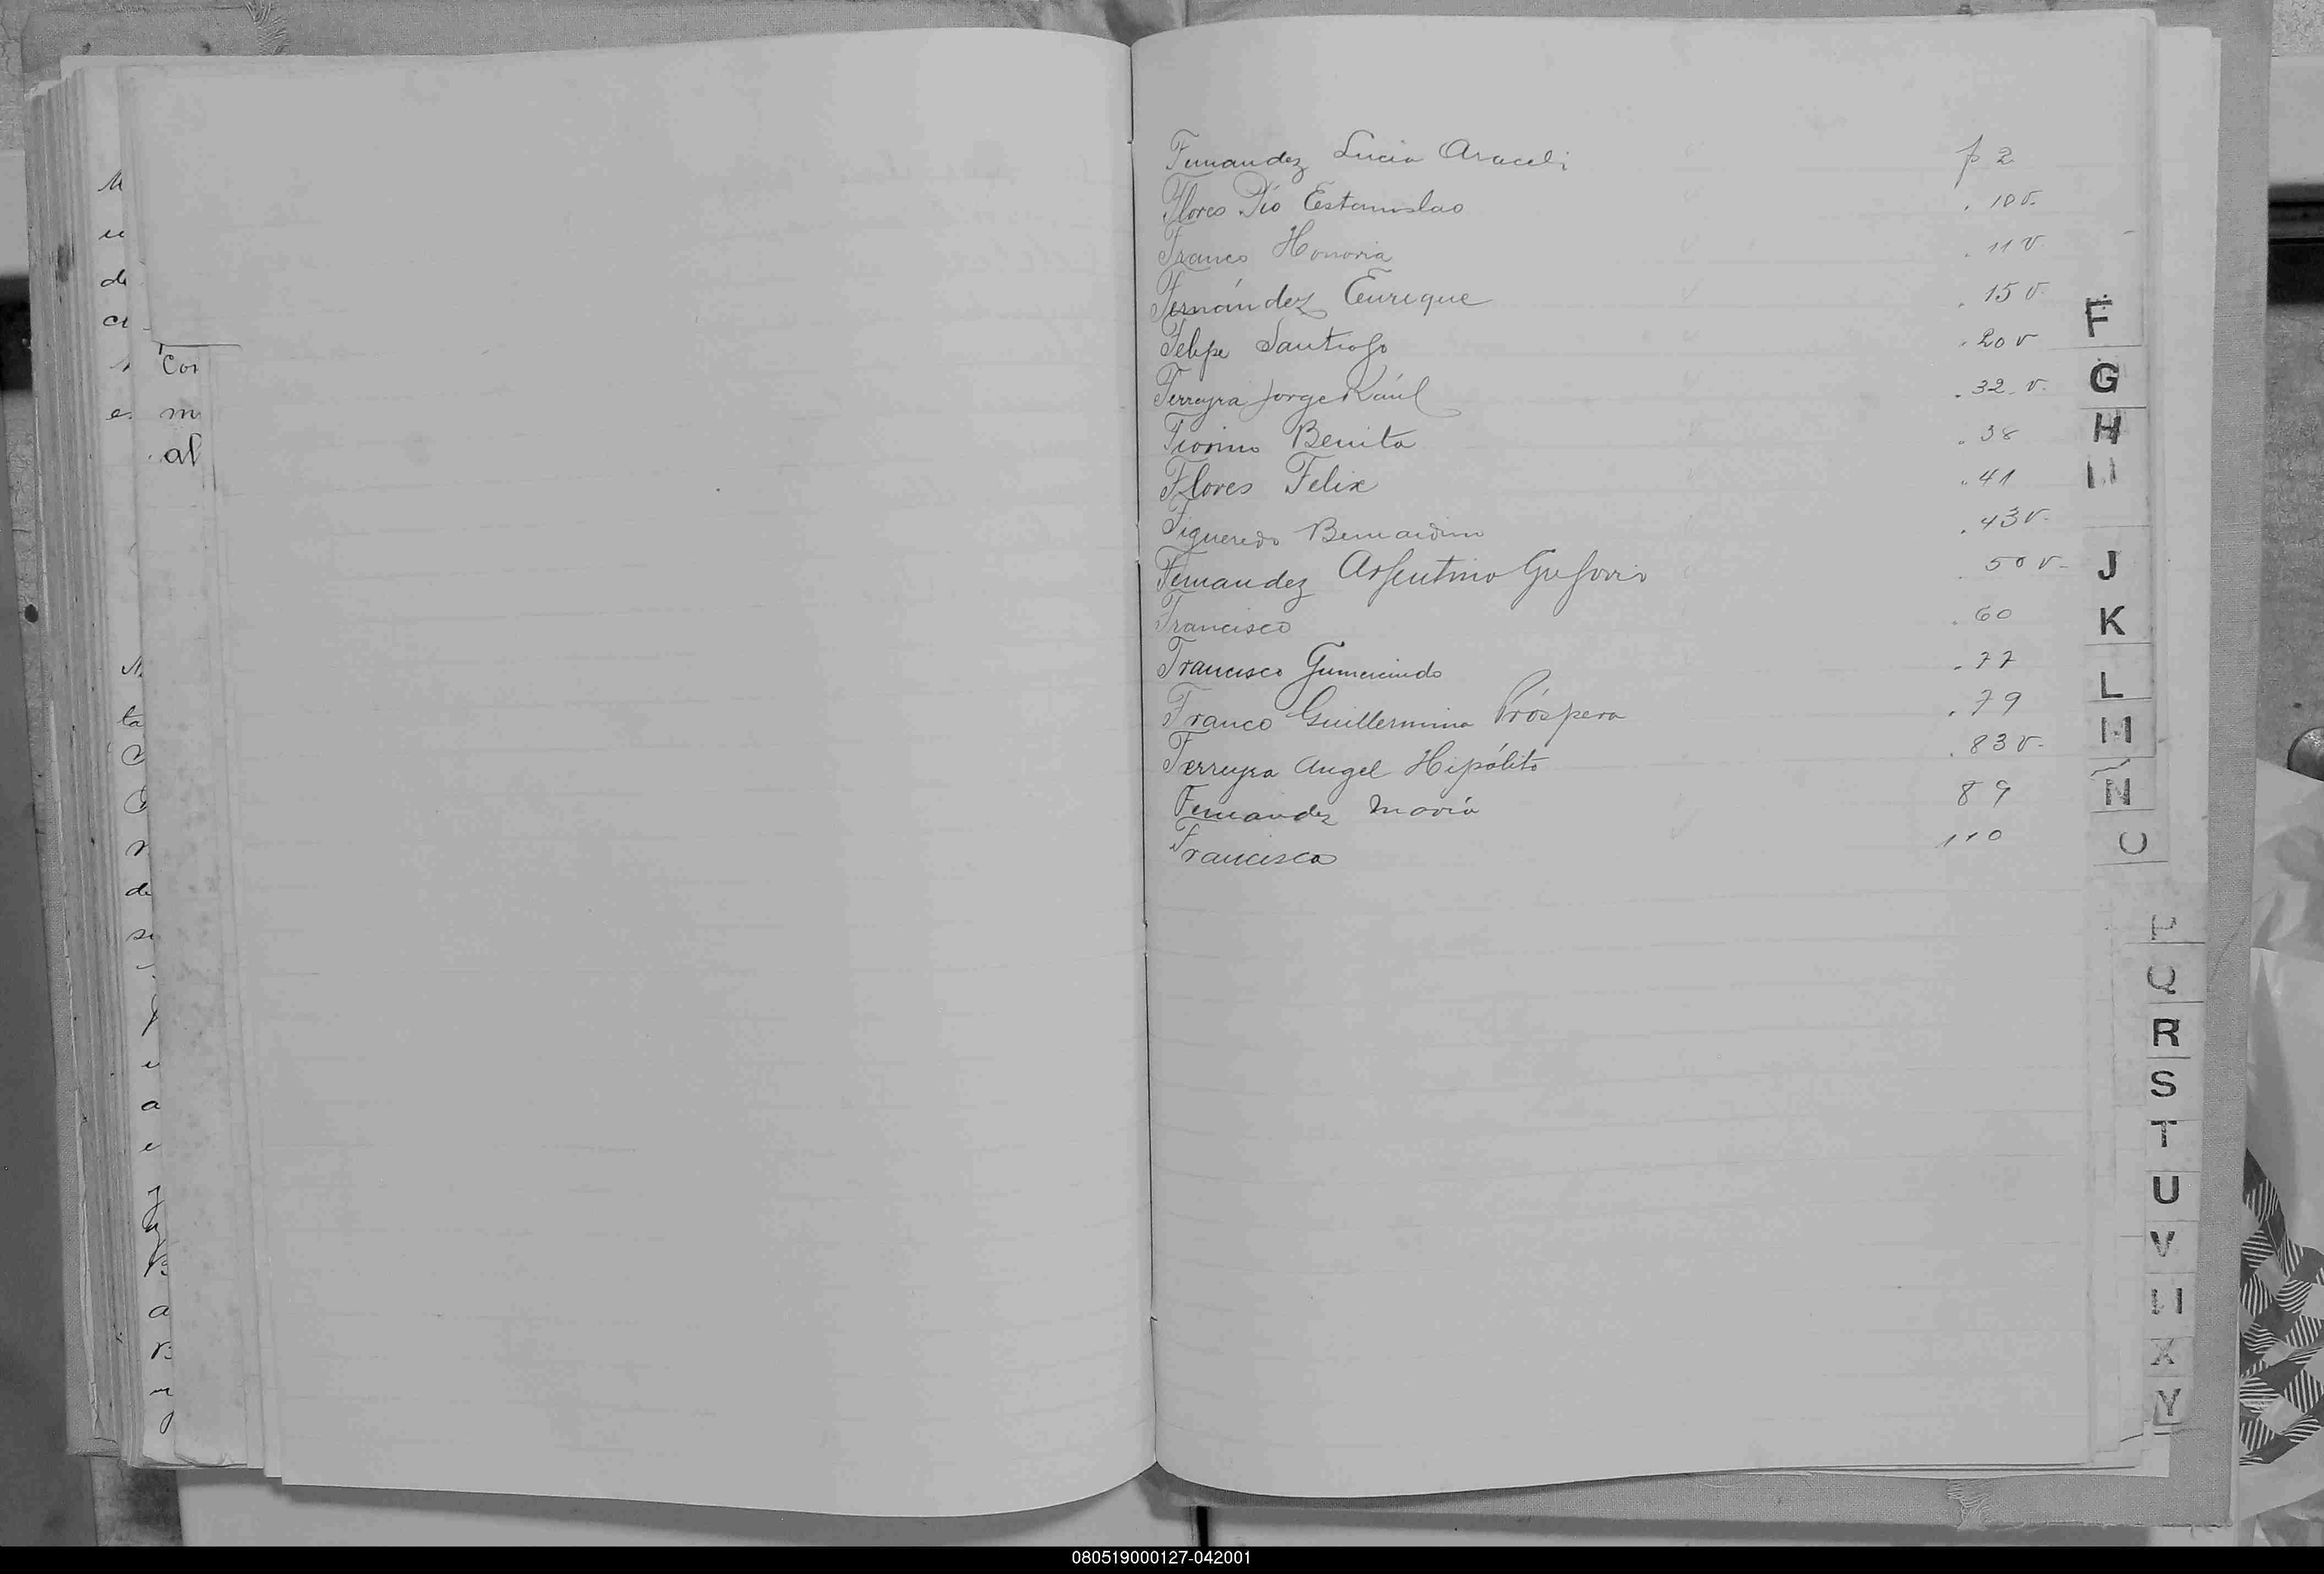 M
u
de
ci
e.
Cor
m
al
ta
de
su
a
e
a
Fernandez Lucia Araceli p 2
Flores Pío Estanislao . 10 v.
Franco Honoria . 11 v
Fernández Enrique . 15 v.
Felipe Santiago . 20 v
Ferreyra Jorge Raúl . 32 v.
Benita . 38
Flores Felix . 41
Figueredo Bernardino . 43 v.
Fernandez Argentino Gregorio 50 v-
Francisco . 60
Francisco Gumercindo . 77
Franco Guillermina Próspera . 79
Ferreyra Angel Hipólito . 83 v.
Fernandez María 89
Francisca 110
F
G
H
J
K
L
M
Ñ
O
P
Q
R
S
T
U
V
X
Y
080519000127-042001